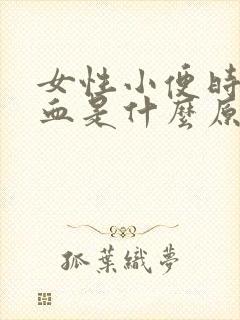 女性小便时
血是什麼原
孤葉織夢